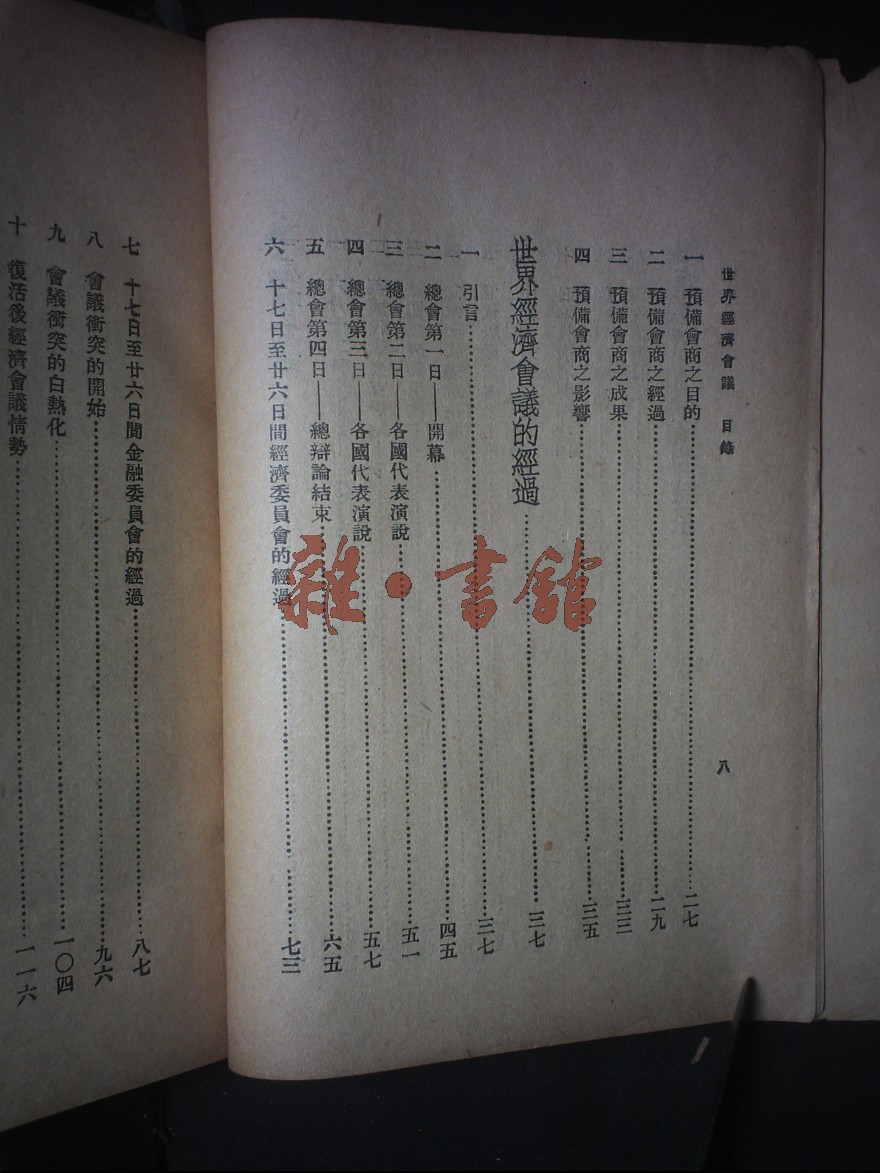 世界經濟會議 目錄
八
一 預備會商之目的……二七
二 預備會商之經過……二九
三 預備會商之成果……三三
四 預備會商之影響……三五
世界經濟會議的經過……三七
一 引言……三七
二 總會第一日——開幕……四五
三 總會第二日——各國代表演說……五一
四 總會第三日——各國代表演說……五七
五 總會第四日——總辯論結束……六五
六 十七日至廿六日間經濟委員會的經過……七三
七 十七日至廿六日間金融委員會的經過……八七
八 會議衝突的開始……九六
九 會議衝突的白熱化……一〇四
十 復活後經濟會議情勢……一一六
雜·書館